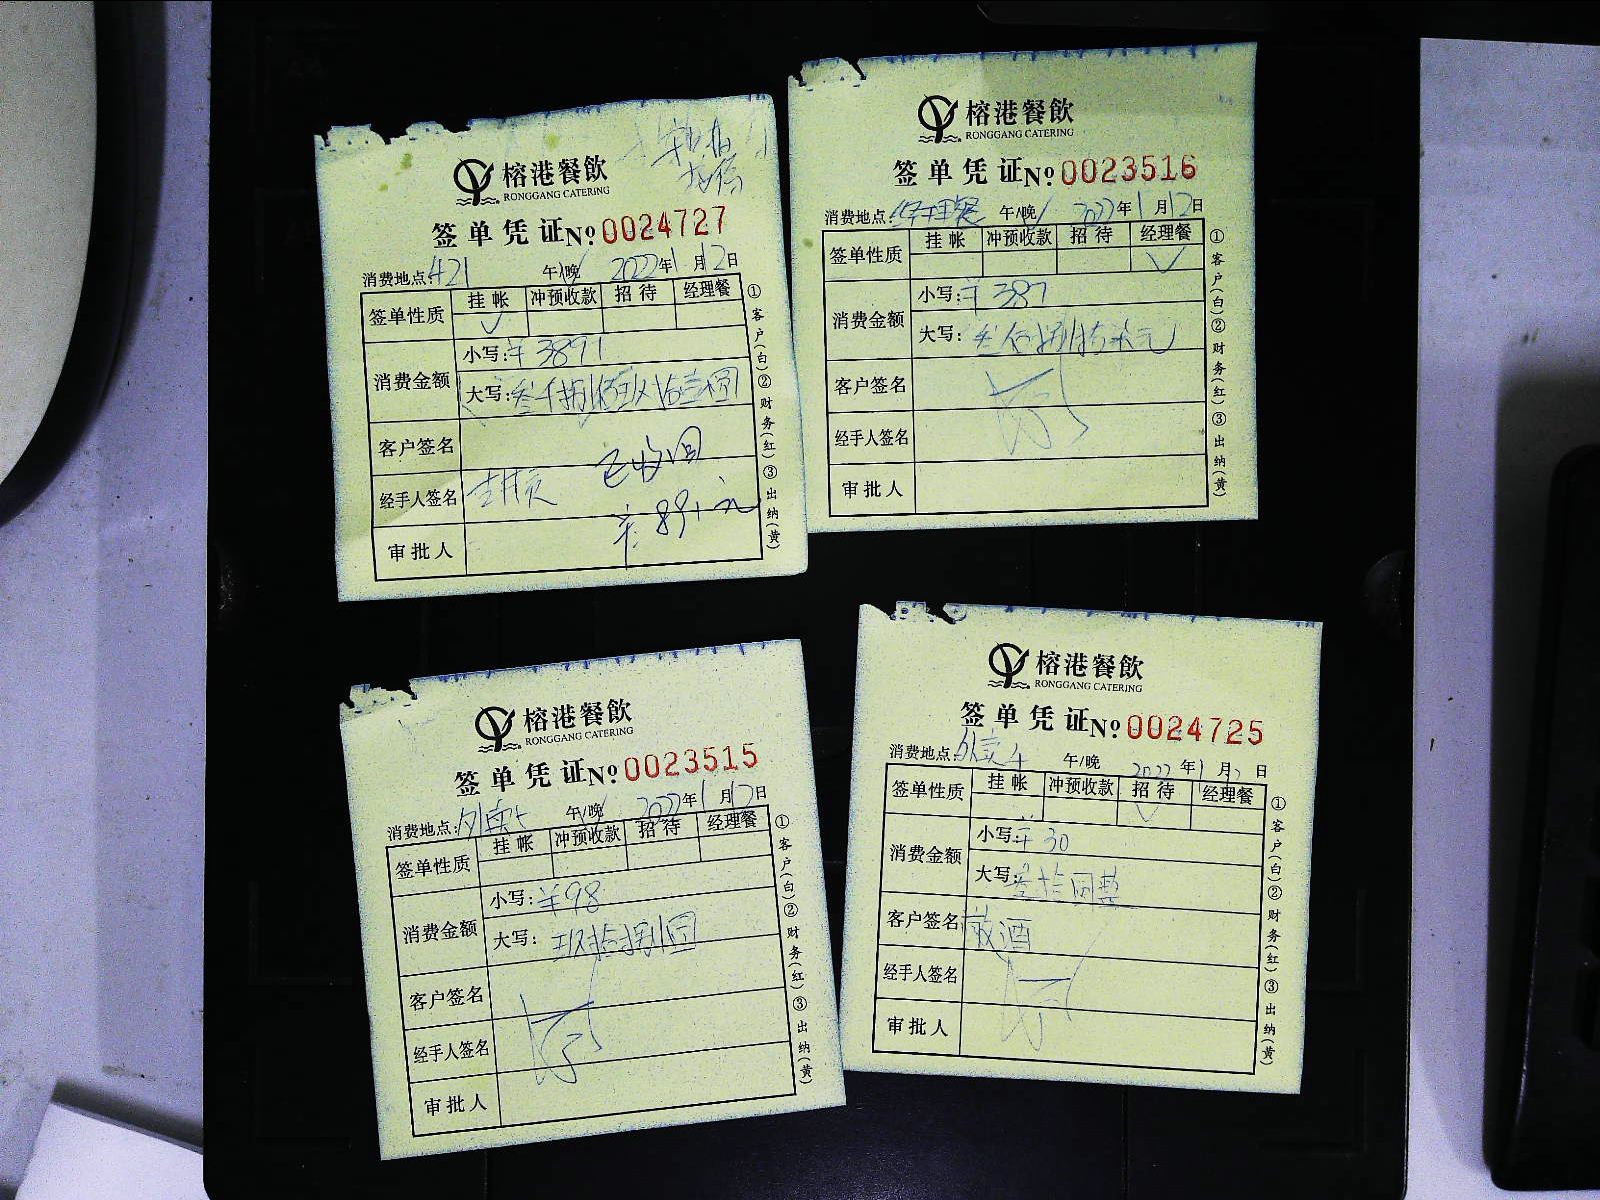 榕港餐飲
RONGGANG CATERING
签单凭证№0024727
消费地点:421 午/晚 2022年1月12日
签单性质 挂帐 冲预收款 招待 经理餐
✓
消费金额 小写:¥3891
大写:叁仟捌佰玖拾壹圆
客户签名
已收回
经手人签名
891元
审批人
①客户(白)②财务(红)③出纳(黄)
榕港餐飲
RONGGANG CATERING
签单凭证№0023516
消费地点:经理餐 午/晚 2022年1月12日
签单性质 挂帐 冲预收款 招待 经理餐
✓
消费金额 小写:¥387
大写:叁佰捌拾柒元
客户签名
经手人签名
审批人
①客户(白)②财务(红)③出纳(黄)
榕港餐飲
RONGGANG CATERING
签单凭证№0023515
消费地点:外卖 午/晚 2022年1月12日
签单性质 挂帐 冲预收款 招待 经理餐
消费金额 小写:¥98
大写:玖拾捌圆
客户签名
经手人签名
审批人
①客户(白)②财务(红)③出纳(黄)
榕港餐飲
RONGGANG CATERING
签单凭证№0024725
消费地点:外卖4 午/晚 2022年1月 日
签单性质 挂帐 冲预收款 招待 经理餐
✓
消费金额 小写:¥30
大写:叁拾圆整
客户签名 散酒
经手人签名
审批人
①客户(白)②财务(红)③出纳(黄)